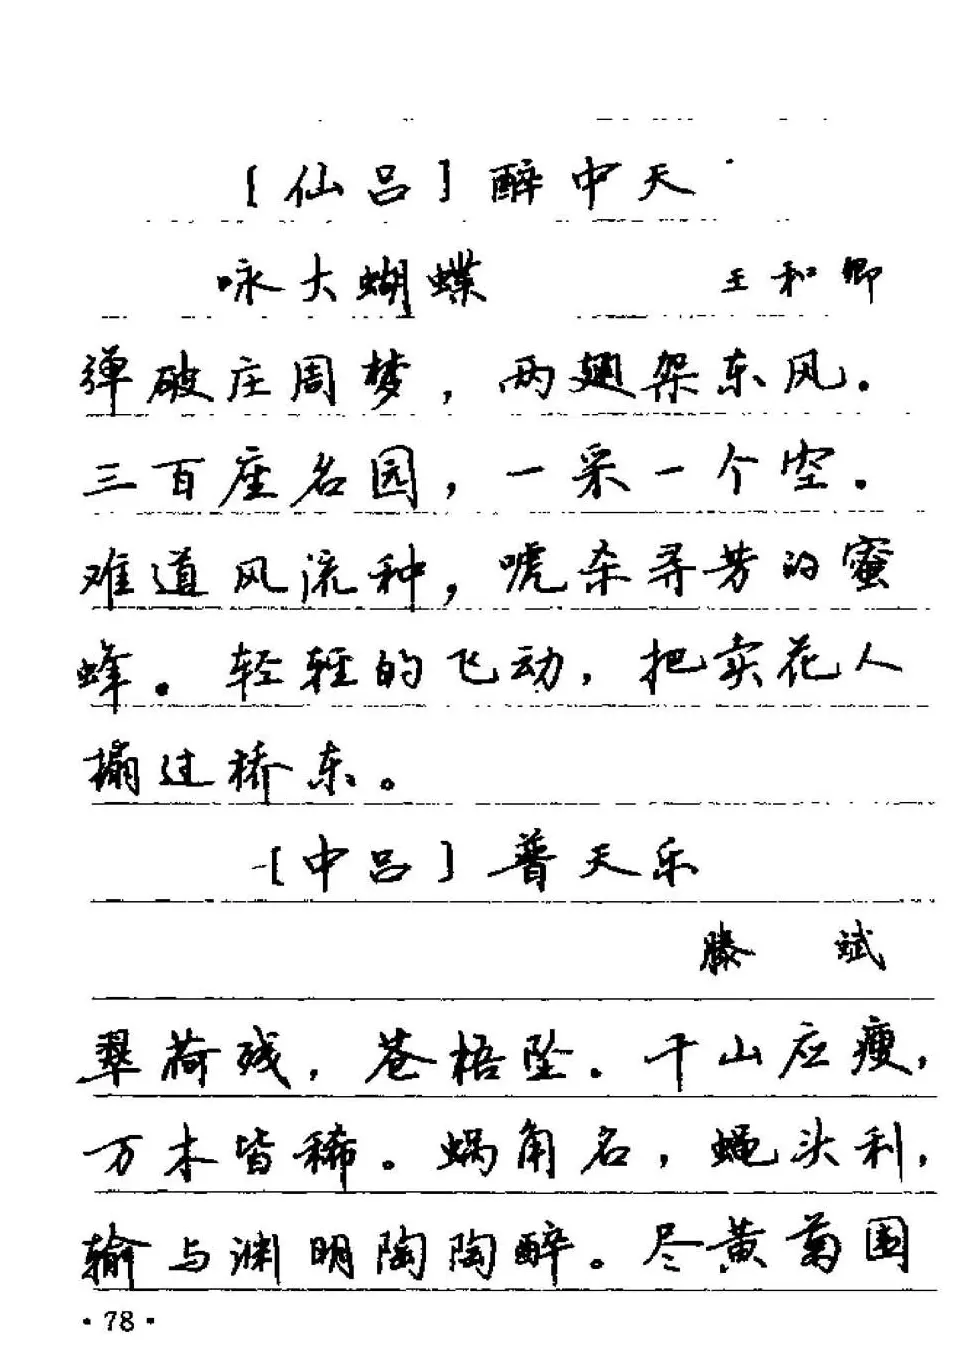 [仙吕]醉中天
咏大蝴蝶 王和卿
弹破庄周梦，两翅架东风。
三百座名园，一采一个空。
难道风流种，唬杀寻芳的蜜
蜂。轻轻的飞动，把卖花人
搧过桥东。
[中吕]普天乐
滕斌
翠荷残，苍梧坠。千山应瘦，
万木皆稀。蜗角名，蝇头利，
输与渊明陶陶醉。尽黄菊围
·78·